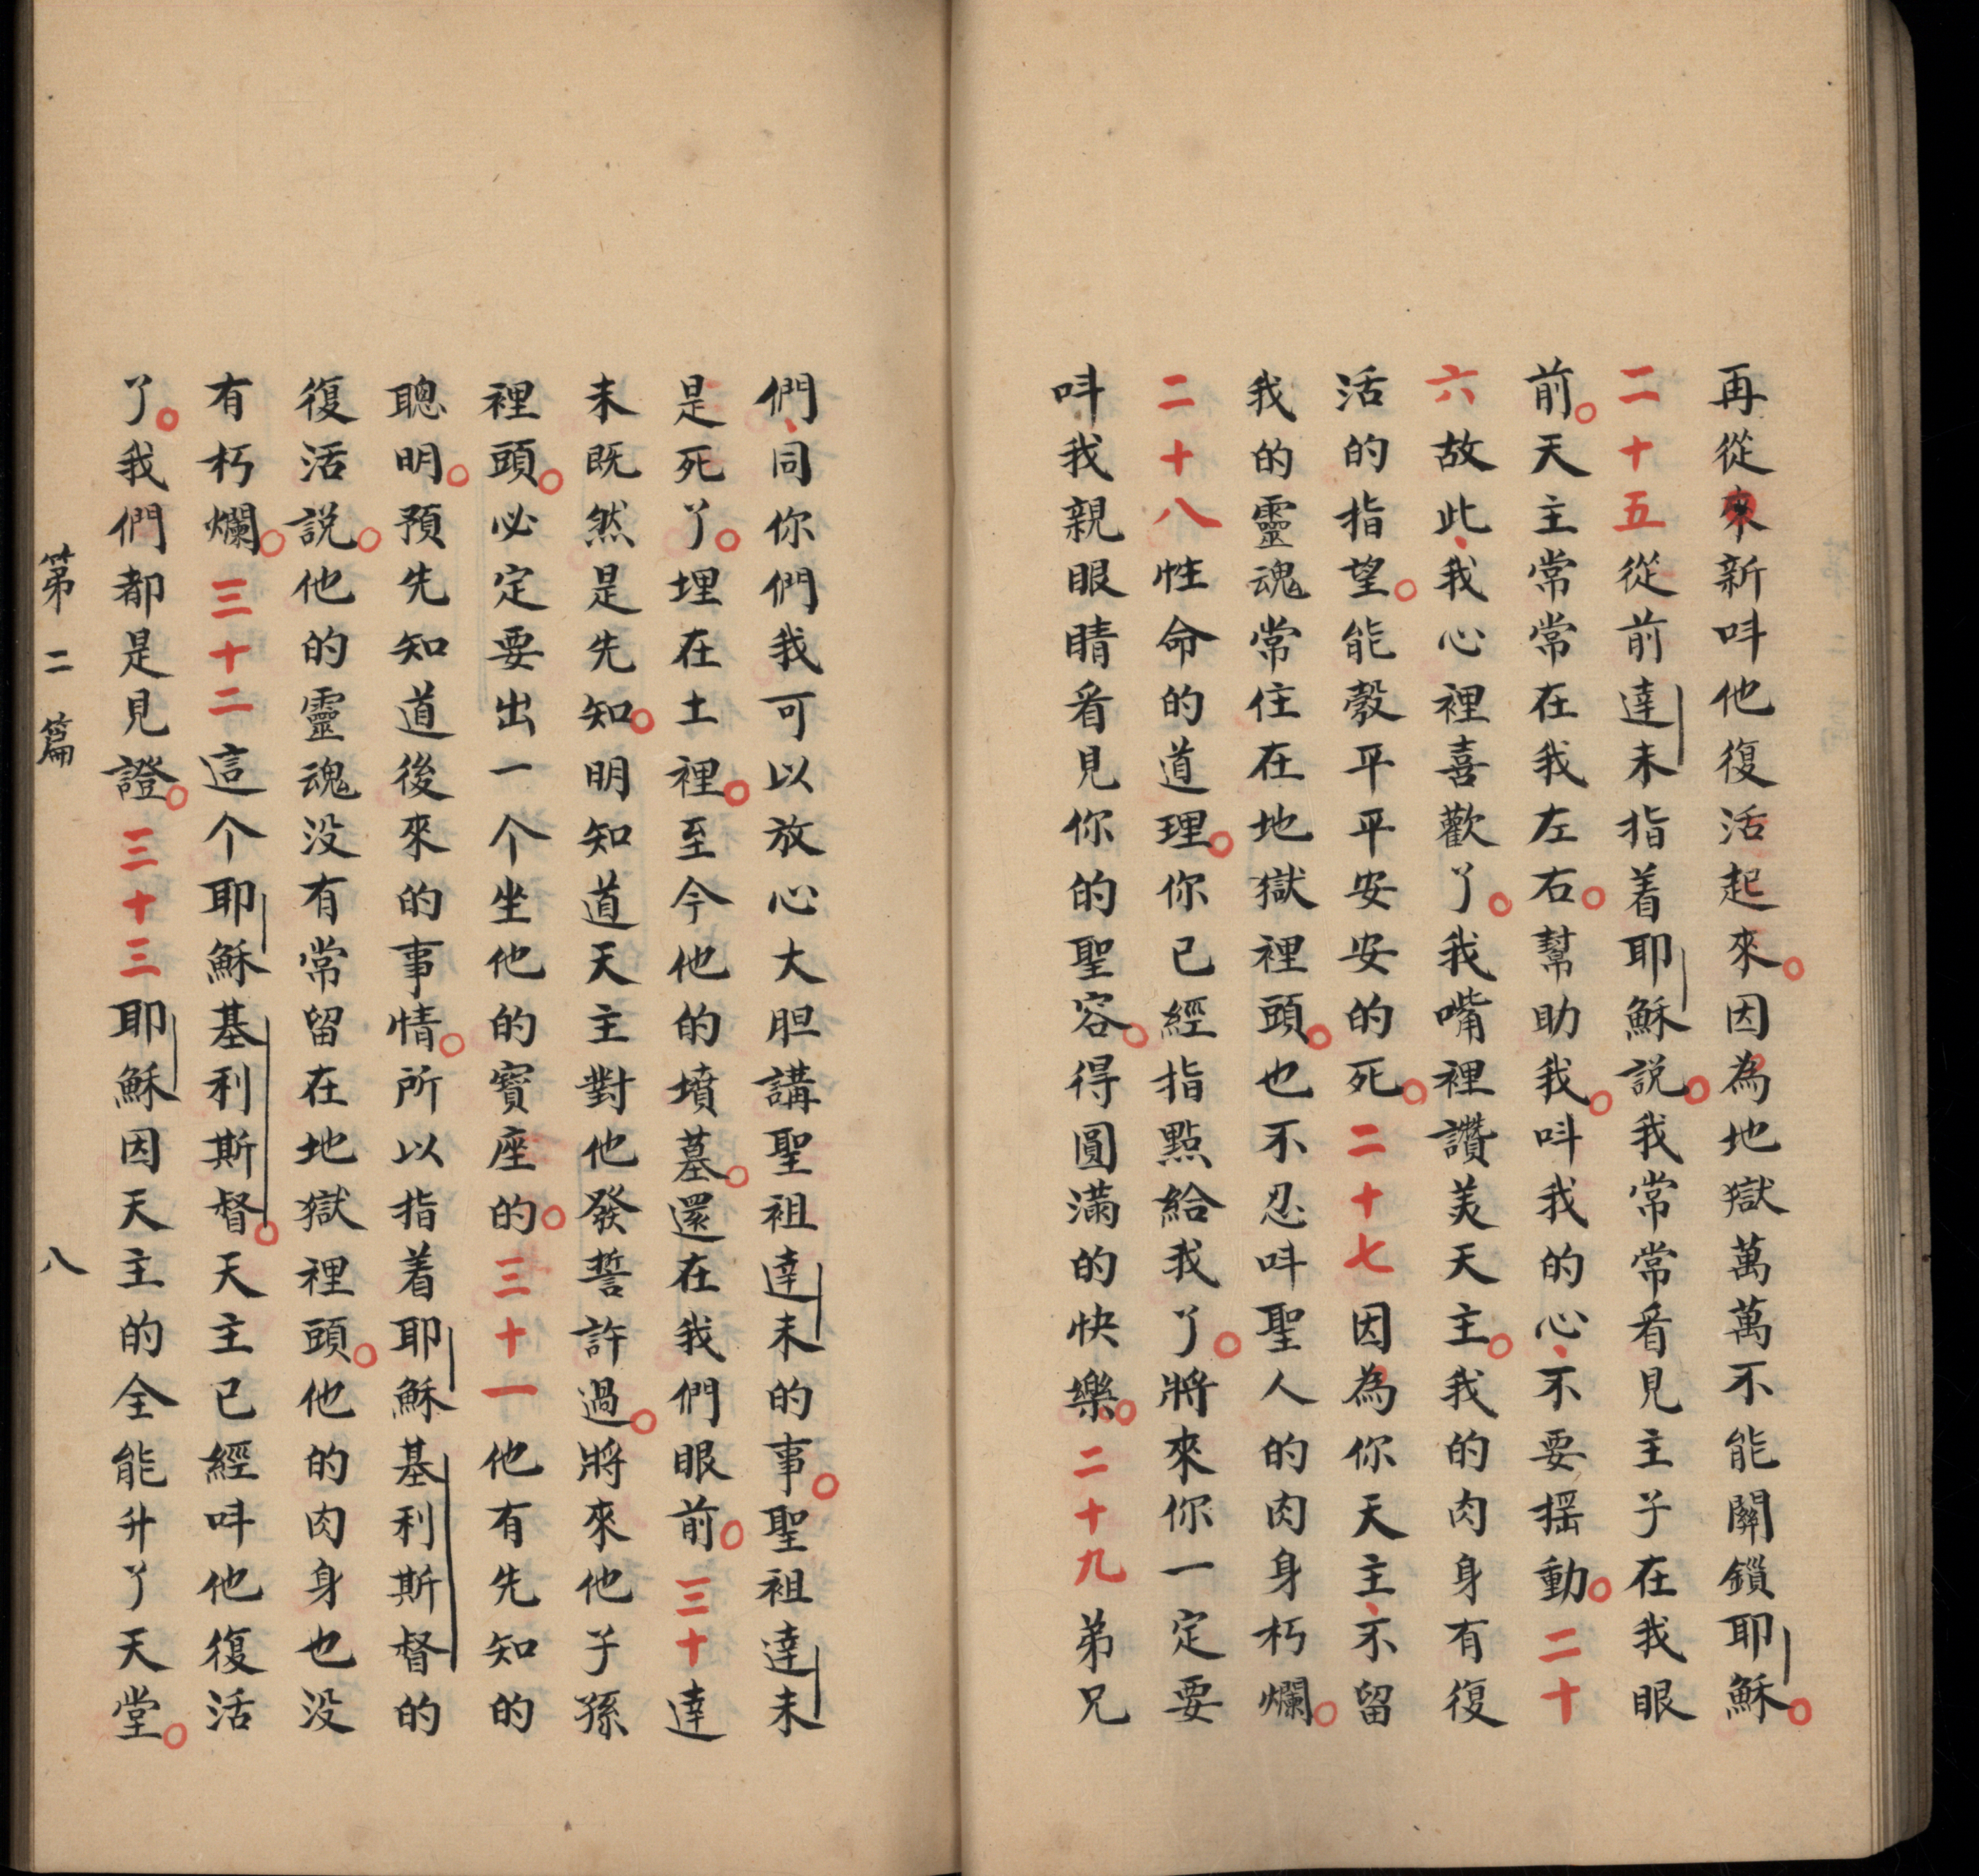 再從來新呌他復活起來。因為地獄萬萬不能關鎖耶穌。
二十五從前達未指着耶穌説。我常常看見主子在我眼
前。天主常常在我左右。幫助我。呌我的心、不要揺動。二十
六故此、我心裡喜歡了。我嘴裡讚美天主。我的肉身有復
活的指望。能彀平平安安的死。二十七因為你天主、不留
我的靈魂常住在地獄裡頭。也不忍呌聖人的肉身朽爛。
二十八性命的道理。你已經指點給我了。將來你一定要
呌我親眼睛看見你的聖容。得圓滿的快樂。二十九弟兄
們、同你們我可以放心大胆講聖祖達未的事。聖祖達未
是死了。埋在土裡。至今他的墳墓。還在我們眼前。三十達
未既然是先知。明知道天主對他發誓許過。將來他子孫
裡頭。必定要出一个坐他的寶座的。三十一他有先知的
聰明。預先知道後來的事情。所以指着耶穌基利斯督的
復活説。他的靈魂没有常留在地獄裡頭。他的肉身也没
有朽爛。三十二這个耶穌基利斯督。天主已經呌他復活
了。我們都是見證。三十三耶穌因天主的全能升了天堂。
第二篇 八